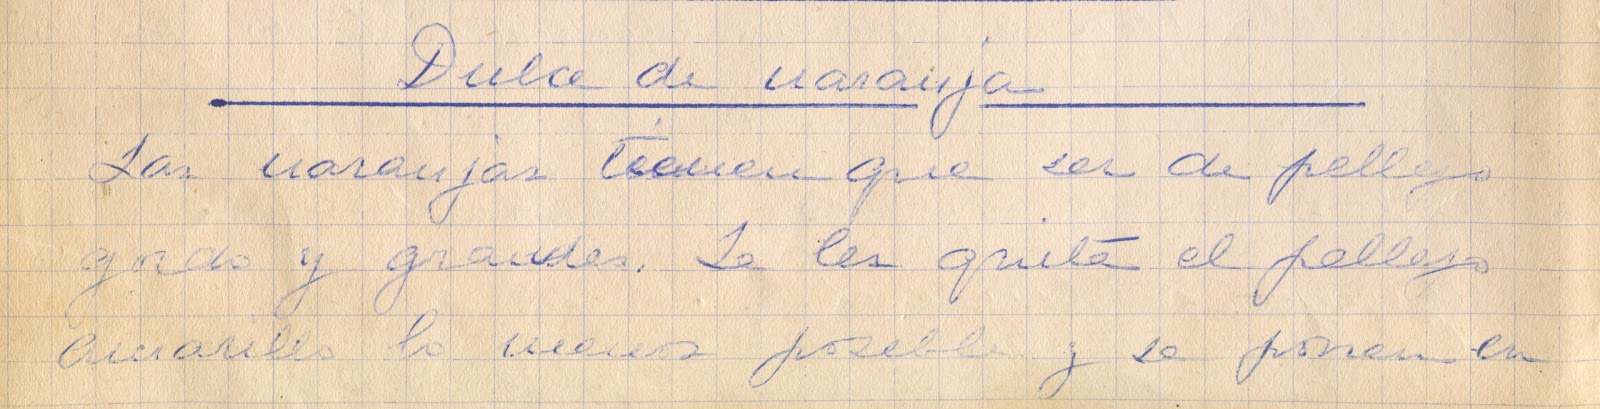 Dulce de naranja
Las naranjas tienen que ser de pellejo
gordo y grandes. Se les quita el pellejo
amarillo lo menos posible y se ponen en